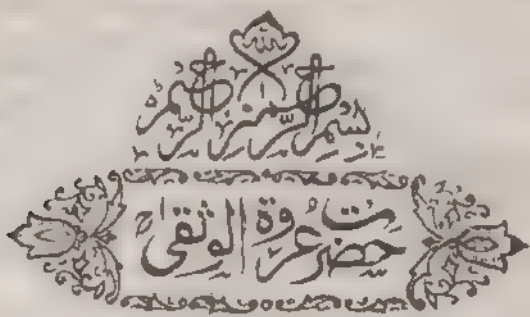 بسم الله الرحمن الرحيم
حضرت عروة الوثقیٰ